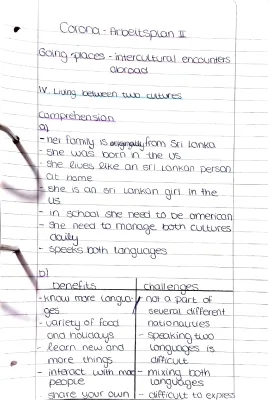 Corona - Arbeitsplan II
Going places - intercultural encounters
abroad
IV. Living between two cultures
Comprehension
a)
- her family is originally from Sri Lanka
- she was born in the US
- she lives like an Sri Lankan person
at home
- she is an Sri Lankan girl in the
US
- in school she need to be american
- she need to manage both cultures
daily
- speeks both languages
b)
benefits
- know more langua-
ges
- variety of food
and holidays
- learn new and
more things
- interact with
people
- share your own
challenges
- not a part of
several different
nationalities
- speaking two
languages is
difficult
- mixing both
languages
- difficult to express